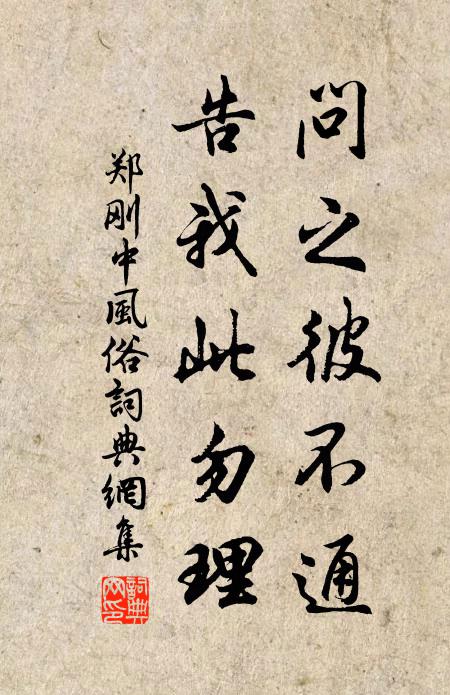 问之彼不通
告我此勿理
郑刚中風俗詞典網集
詞典网印